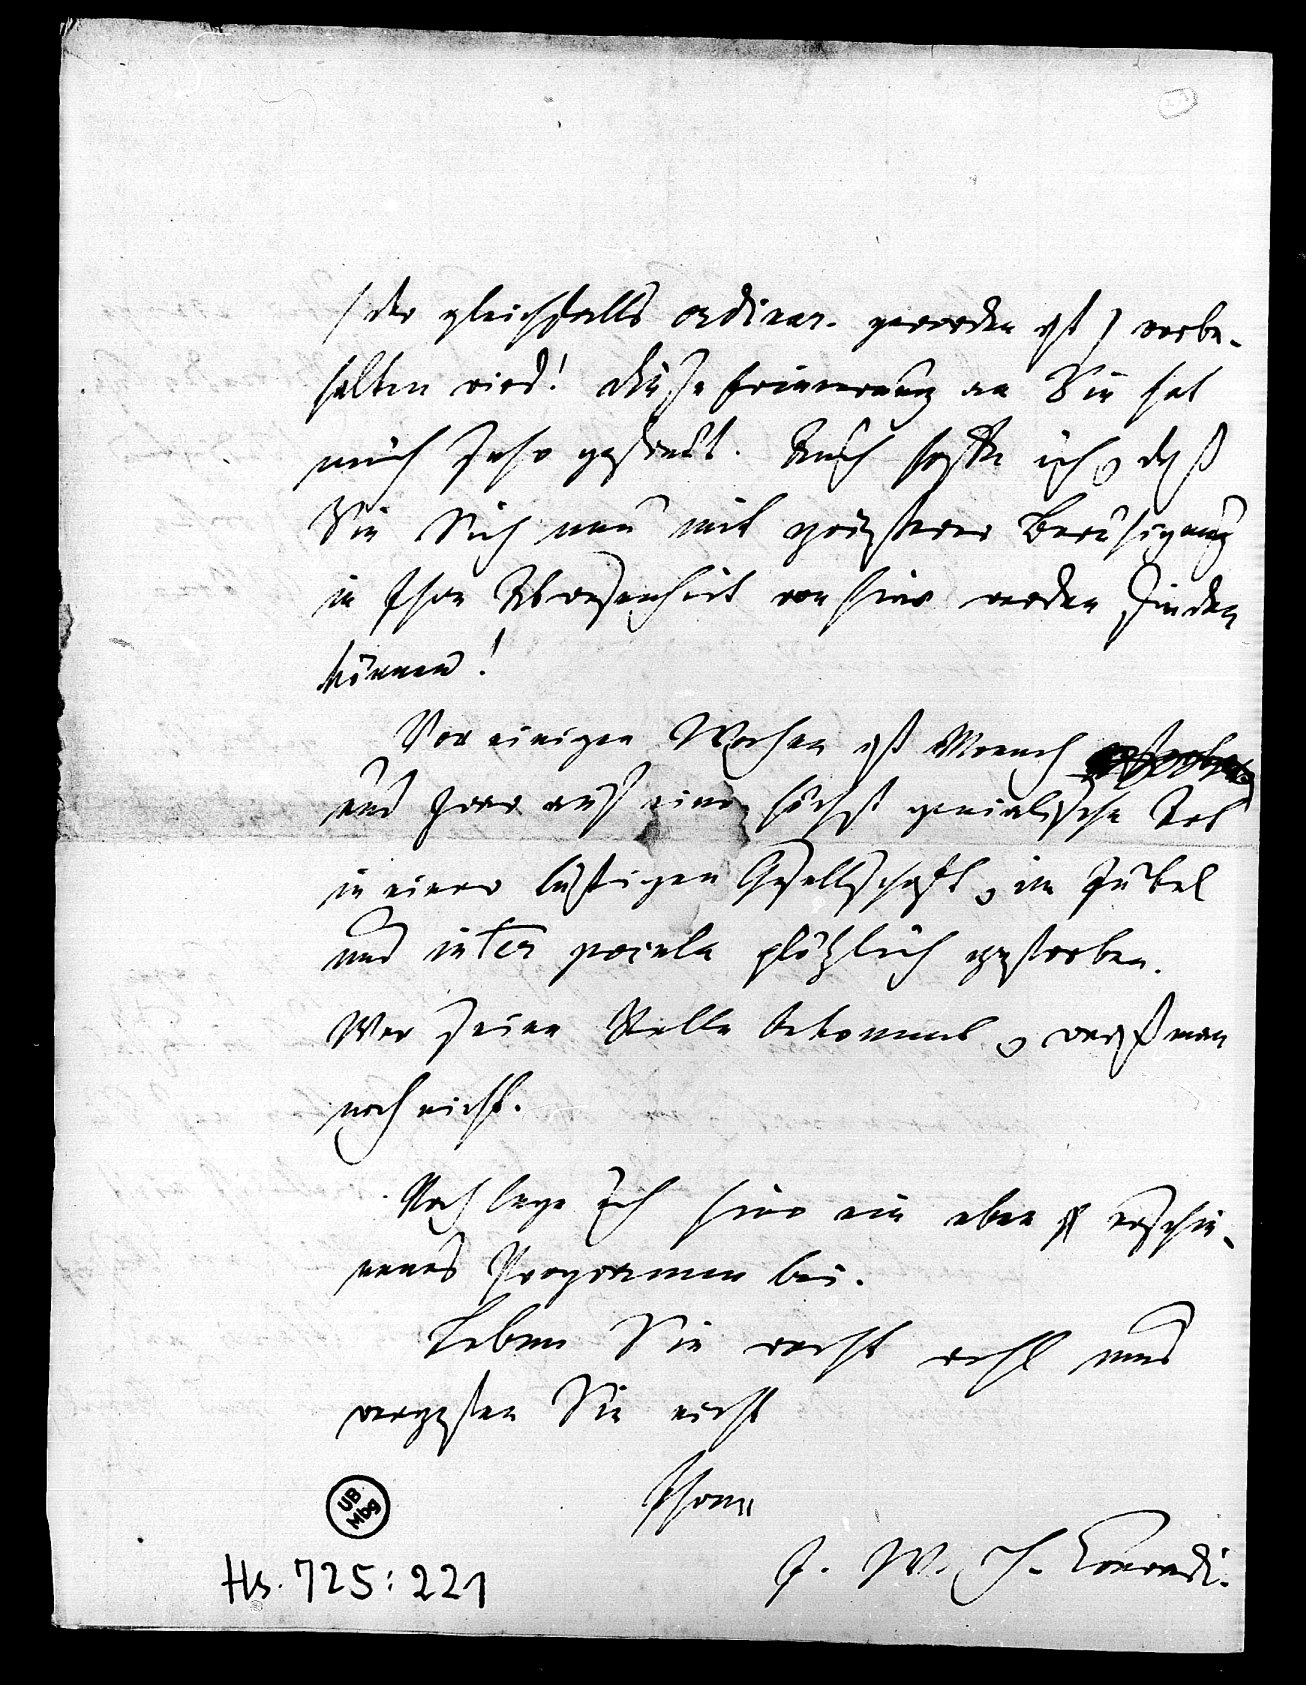 (der gleichfalls ordinar. geworden ist) vorbe-
halten wird! Diese Erinnerung an Sie hat
mich sehr gefreut. Auch hoffe ich, daß
Sie Sich nun mit größerer Beruhigung
in Ihre Abwesenheit von hier werden finden
können!
Vor einigen Wochen ist Moench
und zwar auf eine höchst genialische Art
in einer lustigen Gesellschaft, im Jubel
und inter pocula plötzlich gestorben.
Wer seine Stelle bekommt, weiß man
noch nicht.
Noch lege ich hier ein eben erschie-
nenes Programm bei.
Leben Sie recht wohl und
vergessen Sie nicht
Ihren
J. W. H. Conradi.
UB
Mbg
Hs. 725:221